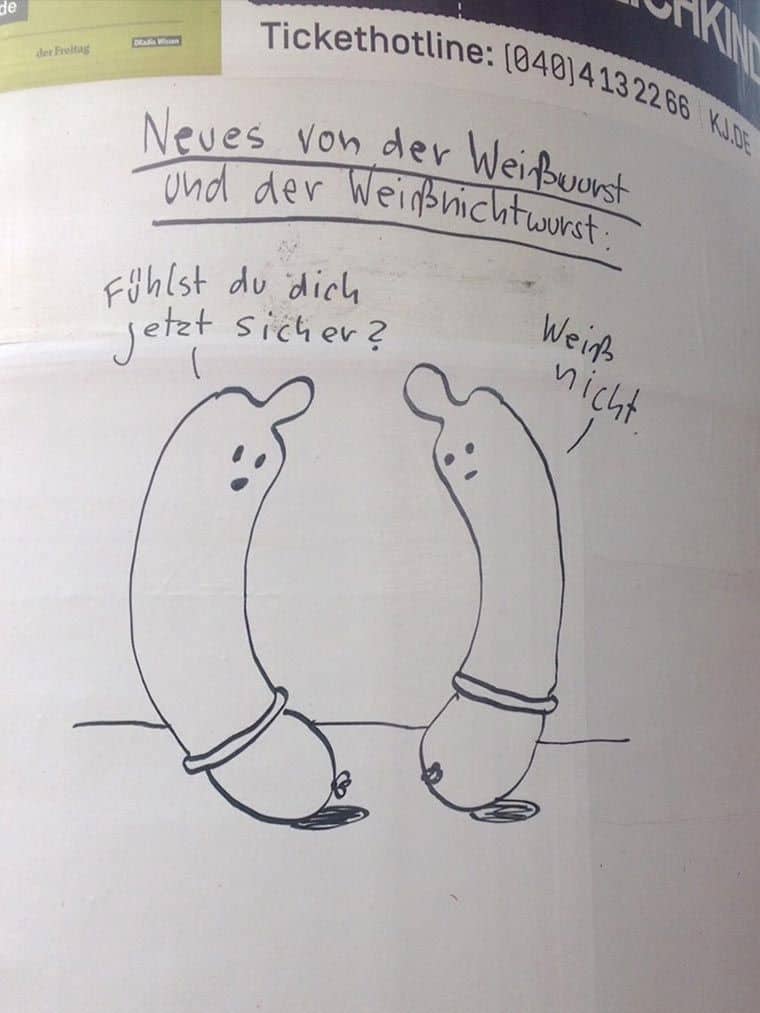 de
der Freitag
DRadio Wissen
Tickethotline: (040) 4 13 22 66 | KJ.DE
Neues von der Weißwurst
und der Weißnichtwurst:
Fühlst du dich
jetzt sicher?
Weiß
nicht.